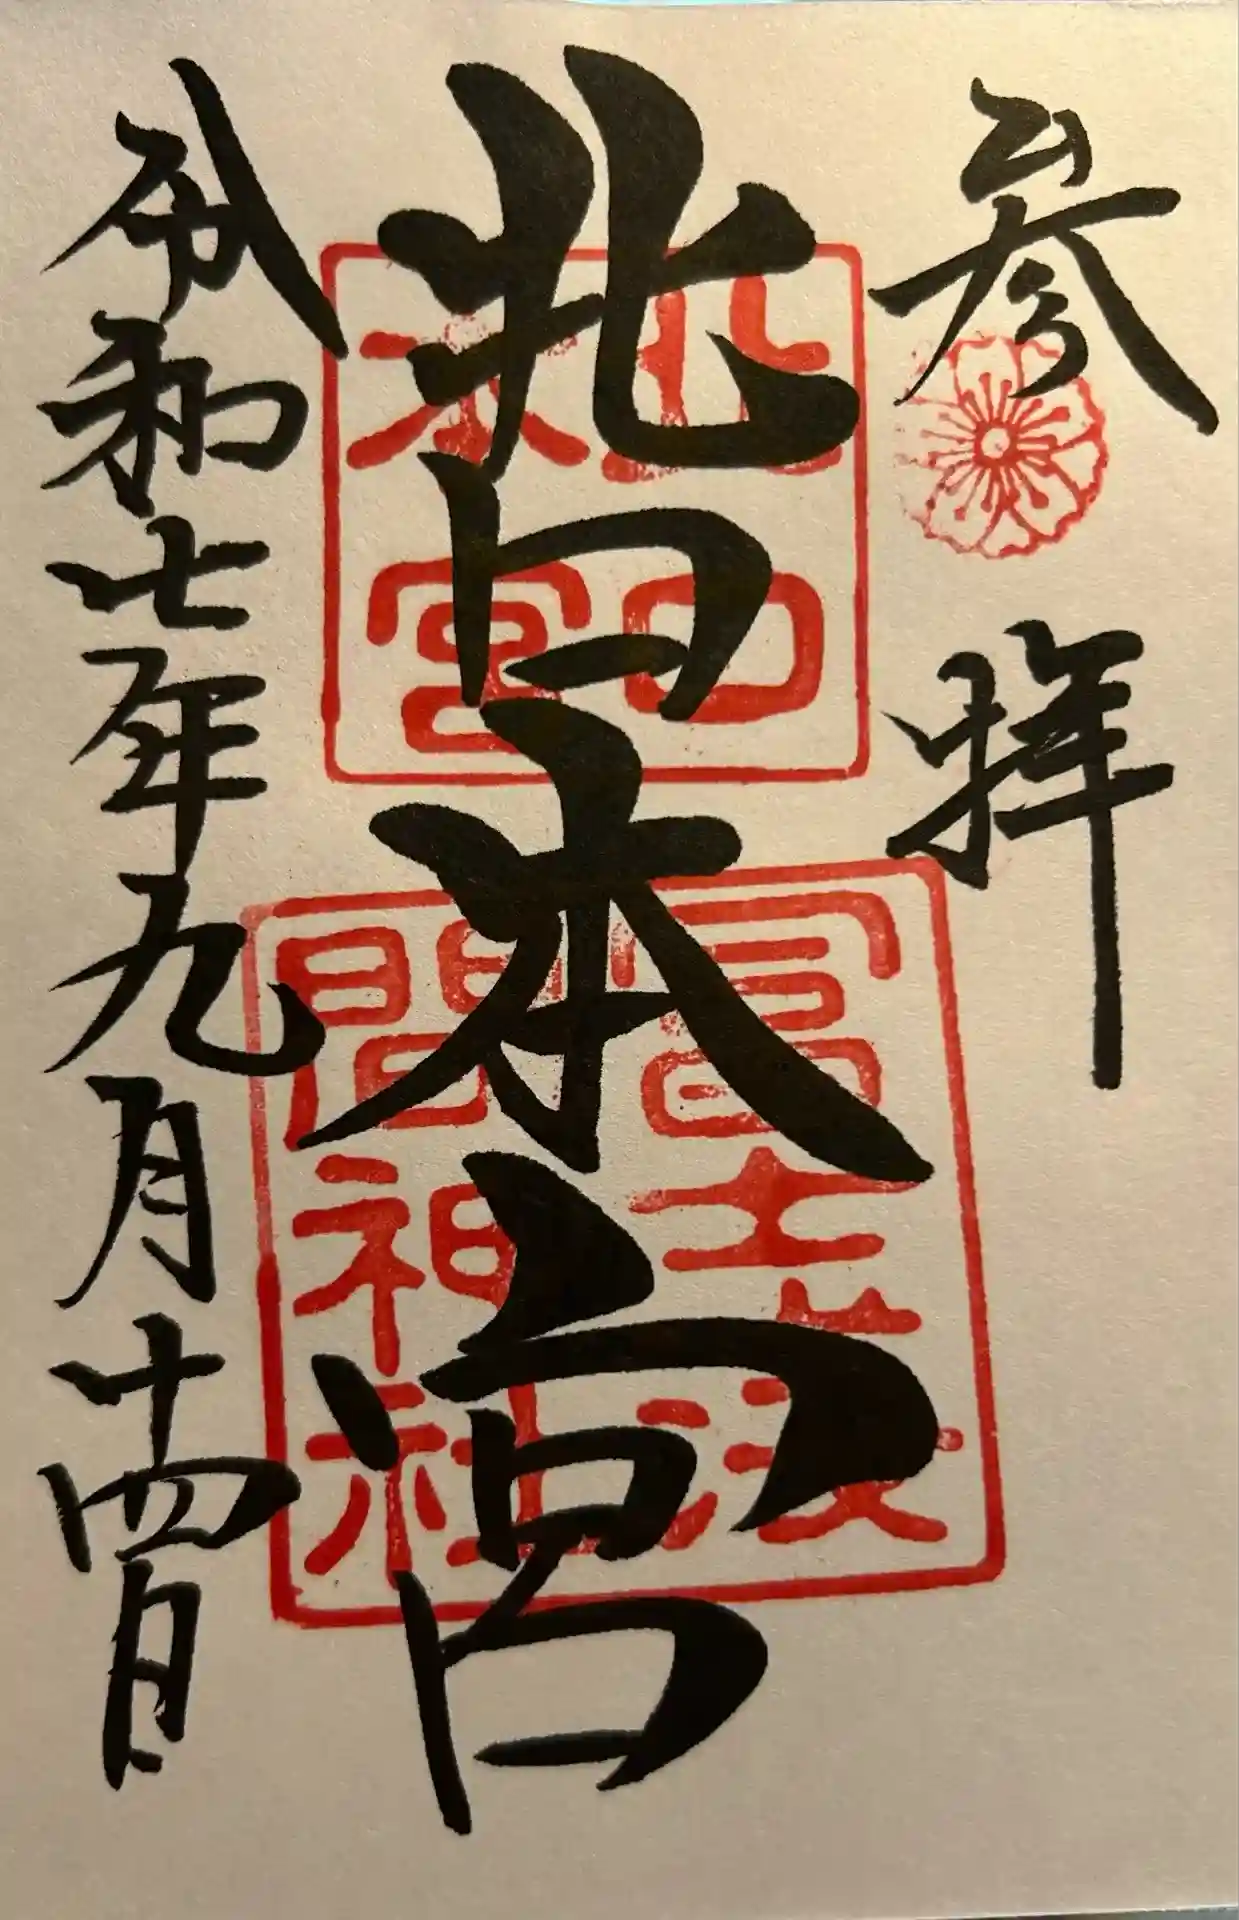 参拝
北口本宮
北口
本宮
冨士浅
間神社
令和七年九月十四日